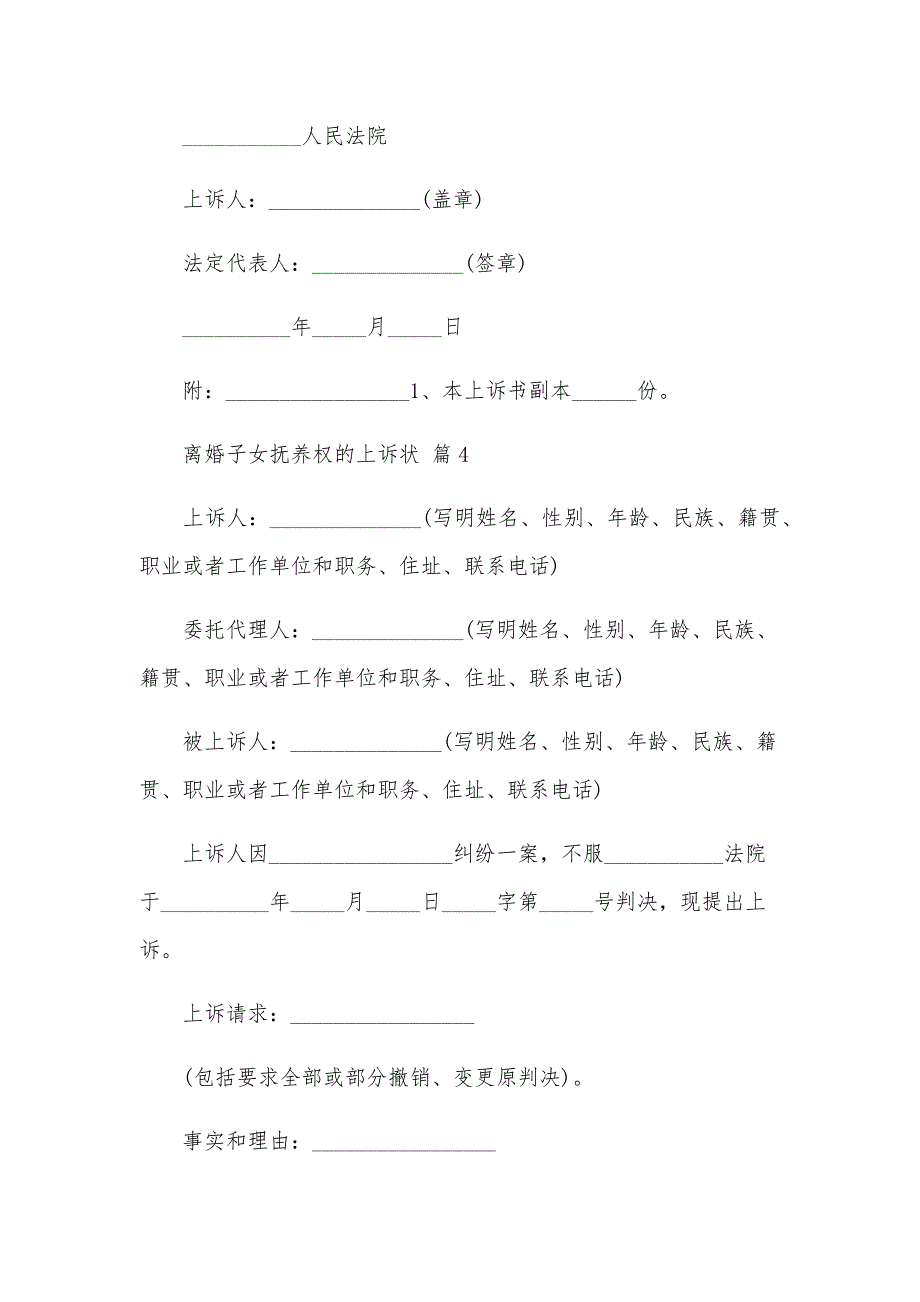 ___________人民法院
上诉人：______________(盖章)
法定代表人：______________(签章)
__________年_____月_____日
附：_________________1、本上诉书副本______份。
离婚子女抚养权的上诉状 篇4
上诉人：______________(写明姓名、性别、年龄、民族、籍贯、
职业或者工作单位和职务、住址、联系电话)
委托代理人：______________(写明姓名、性别、年龄、民族、
籍贯、职业或者工作单位和职务、住址、联系电话)
被上诉人：______________(写明姓名、性别、年龄、民族、籍
贯、职业或者工作单位和职务、住址、联系电话)
上诉人因_________________纠纷一案，不服___________法院
于__________年_____月_____日_____字第_____号判决，现提出上
诉。
上诉请求：_________________
(包括要求全部或部分撤销、变更原判决)。
事实和理由：_________________